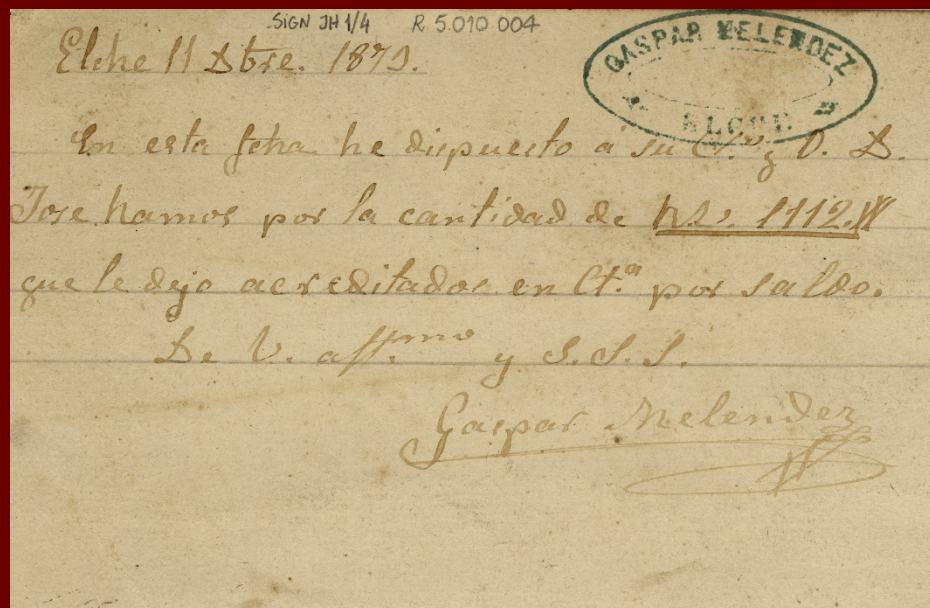 SIGN JH 1/4 R 5.010 004
GASPAR MELENDEZ
ELCHE
Elche 11 Dbre. 1879.
En esta fcha he dispuesto á su C.º y O. D.
Jose Ramos por la cantidad de 1112.
que le dejo acreditados en Ct.ª por saldo.
De V. aff.mo y S.S.S.
Gaspar Melendez